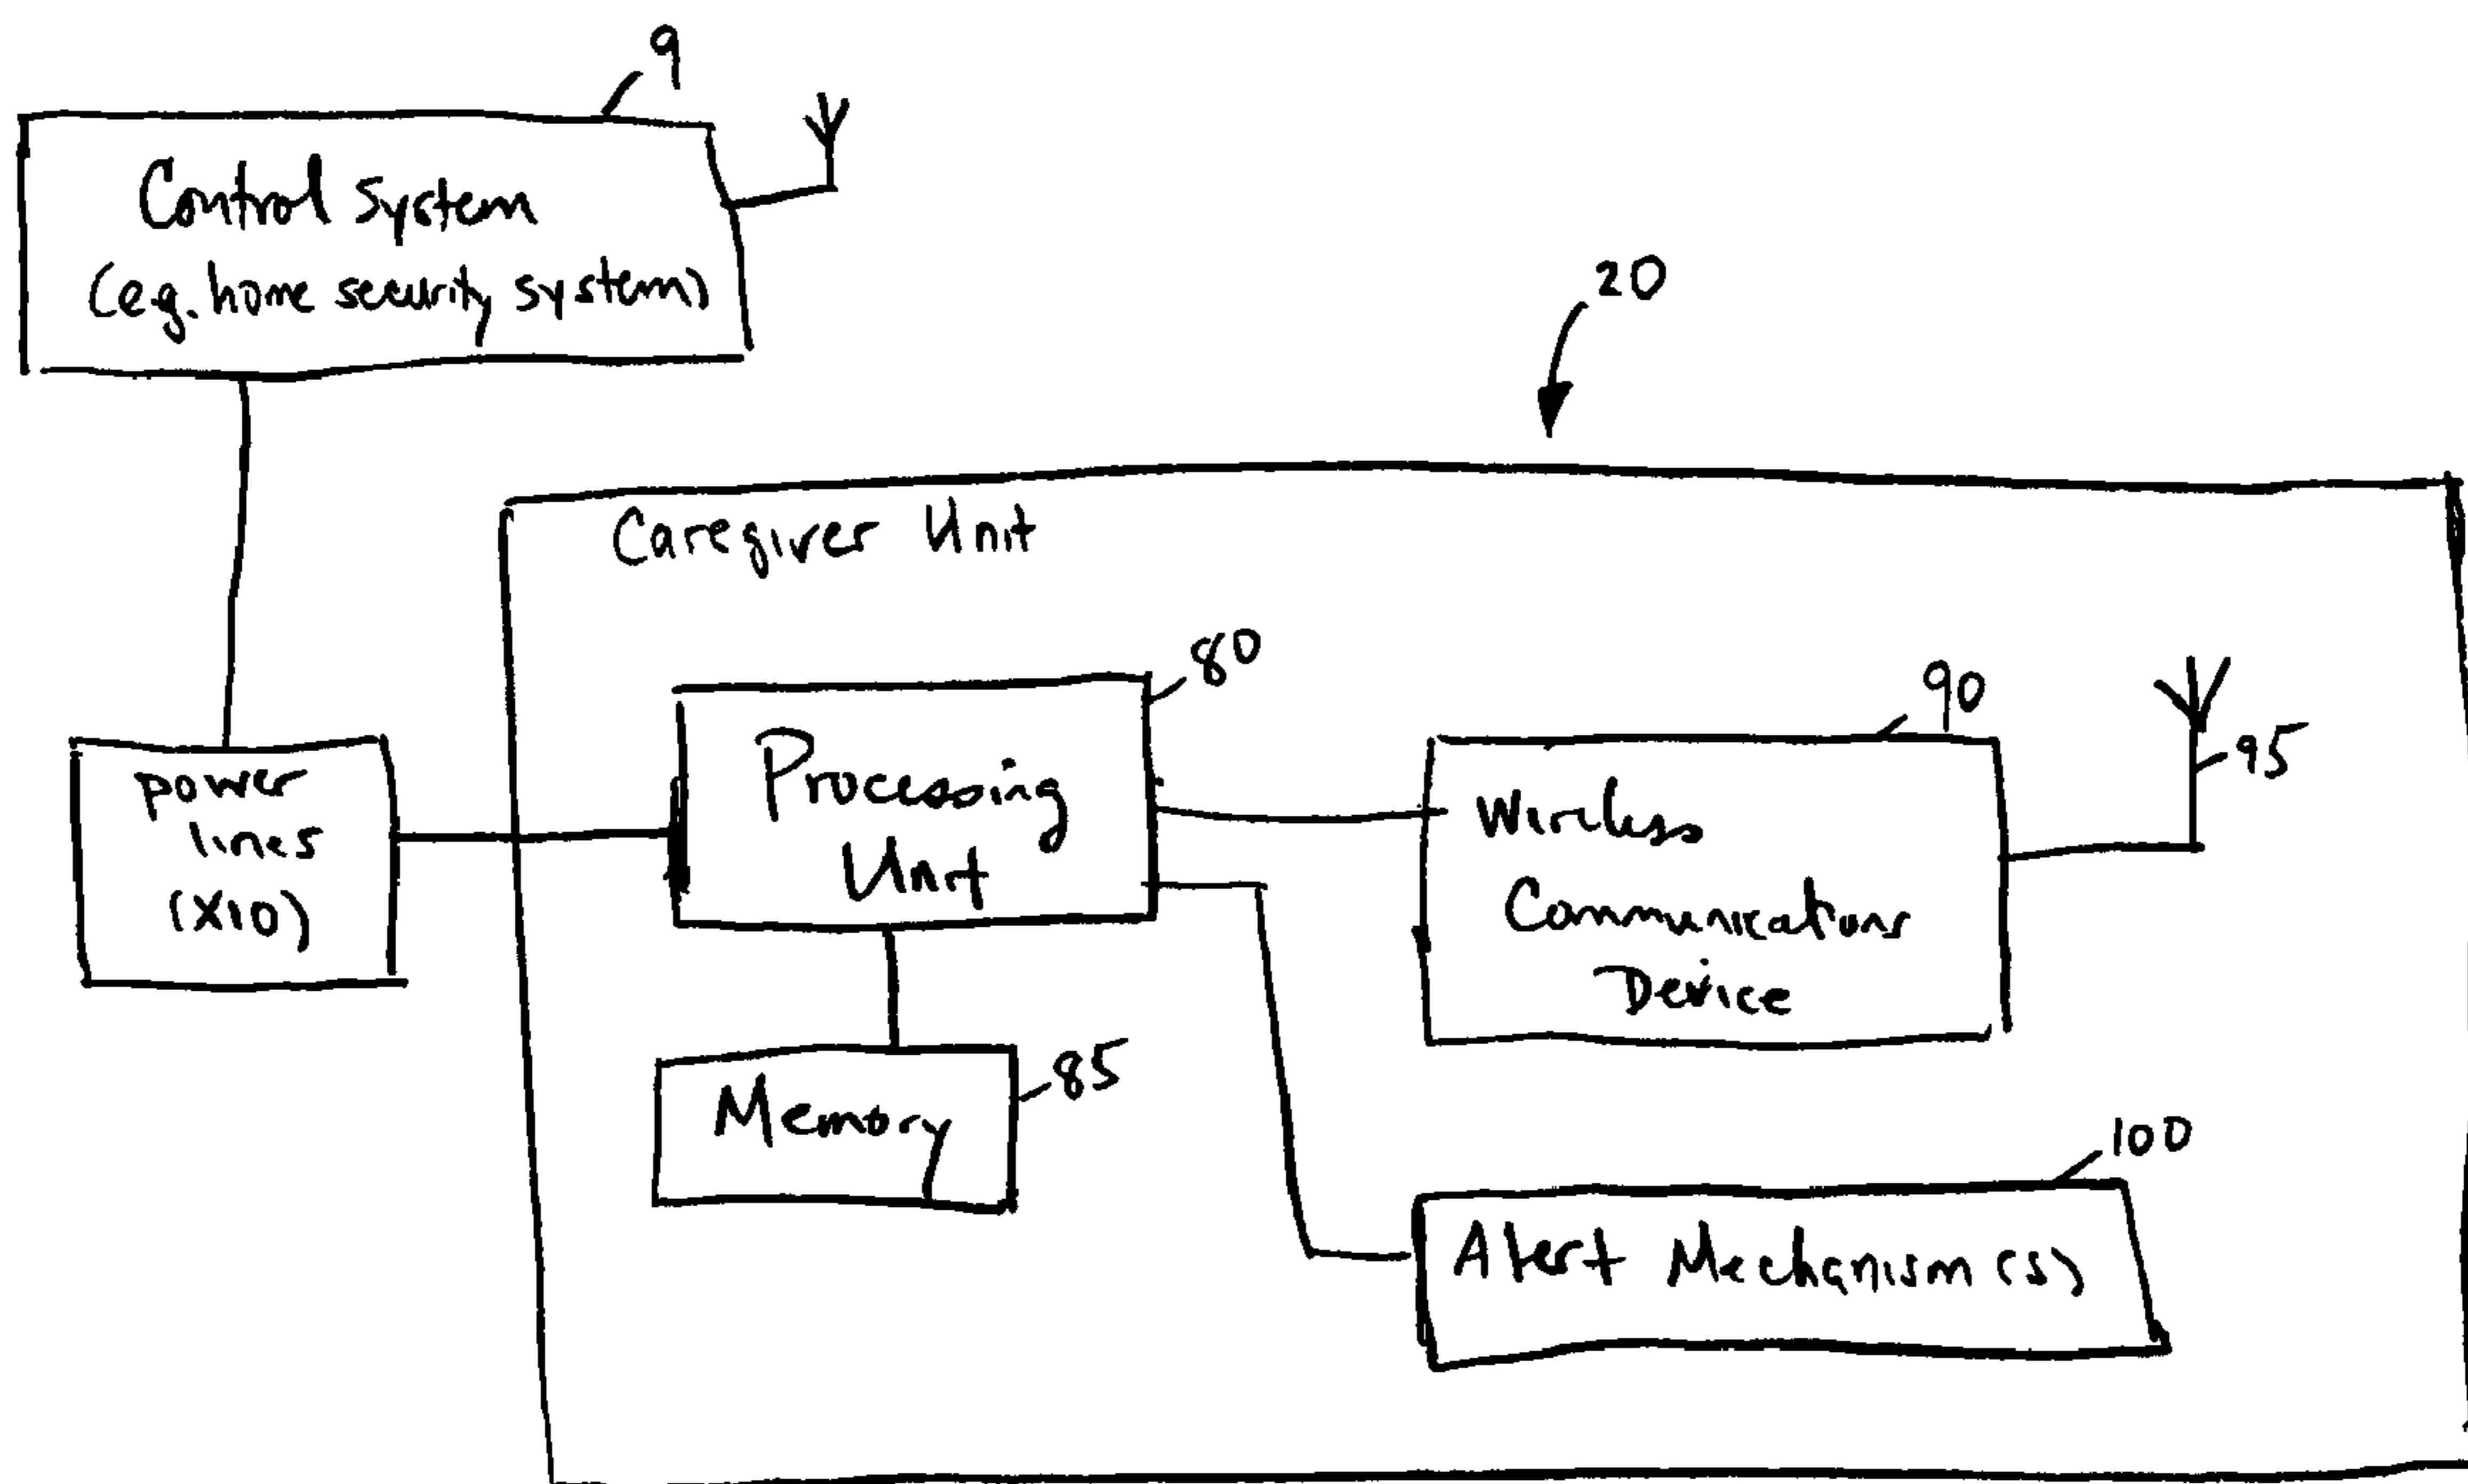 9
Control System
(e.g. home security system)
20
Caregiver Unit
80
Processing
Unit
90
95
Wireless
Communications
Device
power
lines
(X10)
85
Memory
100
Alert Mechanism(s)